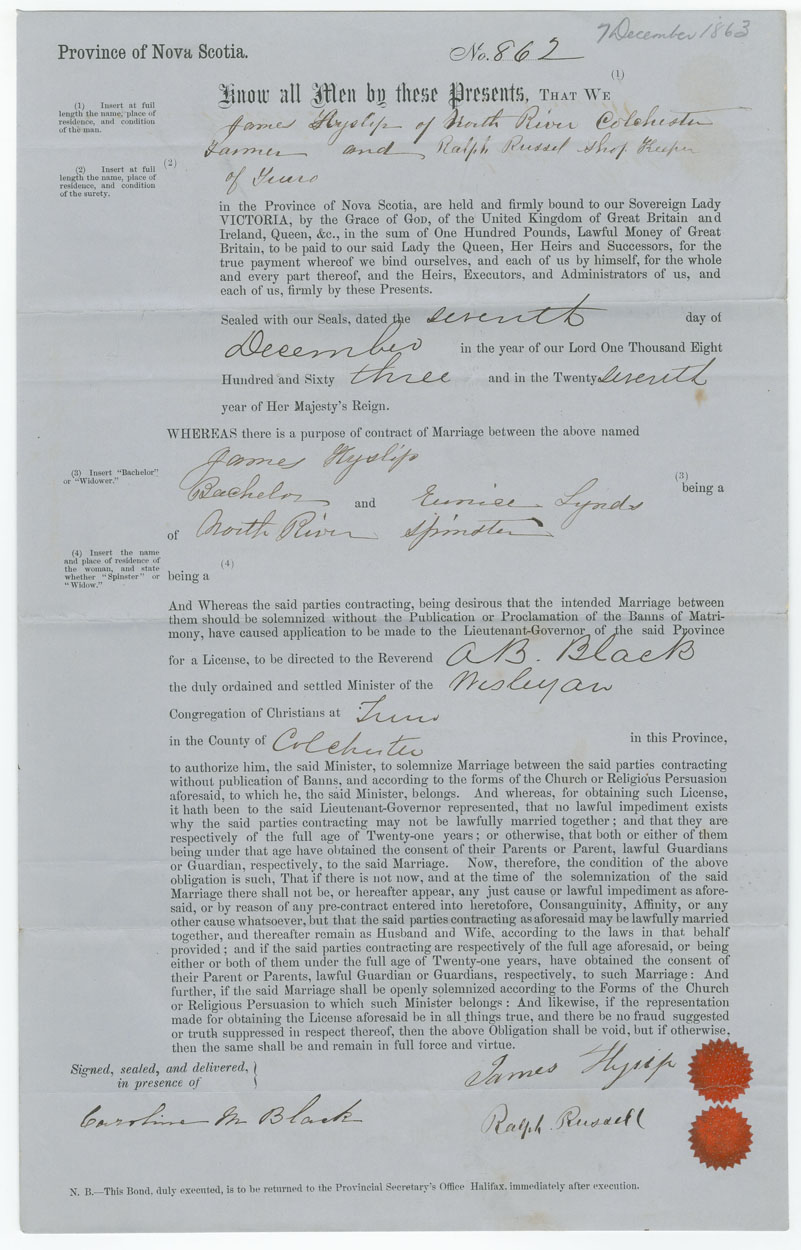 7 December 1863
Province of Nova Scotia.
No. 862
(1)
Know all Men by these Presents, THAT WE
(1) Insert at full
length the name, place of
residence, and condition
of the man.
James Hyslip of North River Colchester
Farmer and Ralph Russel Shop Keeper
(2)
(2) Insert at full
length the name, place of
residence, and condition
of the surety.
of Truro
in the Province of Nova Scotia, are held and firmly bound to our Sovereign Lady
VICTORIA, by the Grace of GOD, of the United Kingdom of Great Britain and
Ireland, Queen, &c., in the sum of One Hundred Pounds, Lawful Money of Great
Britain, to be paid to our said Lady the Queen, Her Heirs and Successors, for the
true payment whereof we bind ourselves, and each of us by himself, for the whole
and every part thereof, and the Heirs, Executors, and Administrators of us, and
each of us, firmly by these Presents.
Sealed with our Seals, dated the seventh day of
December in the year of our Lord One Thousand Eight
Hundred and Sixty three and in the Twenty seventh
year of Her Majesty's Reign.
WHEREAS there is a purpose of contract of Marriage between the above named
James Hyslip
(3) Insert "Bachelor"
or "Widower."
(3)
being a
Bachelor and Eunice Lynds
of North River Spinster
(4) Insert the name
and place of residence of
the woman, and state
whether "Spinster" or
"Widow."
(4)
being a
And Whereas the said parties contracting, being desirous that the intended Marriage between
them should be solemnized without the Publication or Proclamation of the Banns of Matri-
mony, have caused application to be made to the Lieutenant-Governor of the said Province
for a License, to be directed to the Reverend A B. Black
the duly ordained and settled Minister of the Wesleyan
Congregation of Christians at Truro
in the County of Colchester in this Province,
to authorize him, the said Minister, to solemnize Marriage between the said parties contracting
without publication of Banns, and according to the forms of the Church or Religious Persuasion
aforesaid, to which he, the said Minister, belongs. And whereas, for obtaining such License,
it hath been to the said Lieutenant-Governor represented, that no lawful impediment exists
why the said parties contracting may not be lawfully married together; and that they are
respectively of the full age of Twenty-one years; or otherwise, that both or either of them
being under that age have obtained the consent of their Parents or Parent, lawful Guardians
or Guardian, respectively, to the said Marriage. Now, therefore, the condition of the above
obligation is such, That if there is not now, and at the time of the solemnization of the said
Marriage there shall not be, or hereafter appear, any just cause or lawful impediment as afore-
said, or by reason of any pre-contract entered into heretofore, Consanguinity, Affinity, or any
other cause whatsoever, but that the said parties contracting as aforesaid may be lawfully married
together, and thereafter remain as Husband and Wife, according to the laws in that behalf
provided; and if the said parties contracting are respectively of the full age aforesaid, or being
either or both of them under the full age of Twenty-one years, have obtained the consent of
their Parent or Parents, lawful Guardian or Guardians, respectively, to such Marriage: And
further, if the said Marriage shall be openly solemnized according to the Forms of the Church
or Religious Persuasion to which such Minister belongs: And likewise, if the representation
made for obtaining the License aforesaid be in all things true, and there be no fraud suggested
or truth suppressed in respect thereof, then the above Obligation shall be void, but if otherwise,
then the same shall be and remain in full force and virtue.
Signed, sealed, and delivered,
in presence of
James Hyslip
Caroline M Black
Ralph Russell
N. B.—This Bond, duly executed, is to be returned to the Provincial Secretary's Office Halifax, immediately after execution.